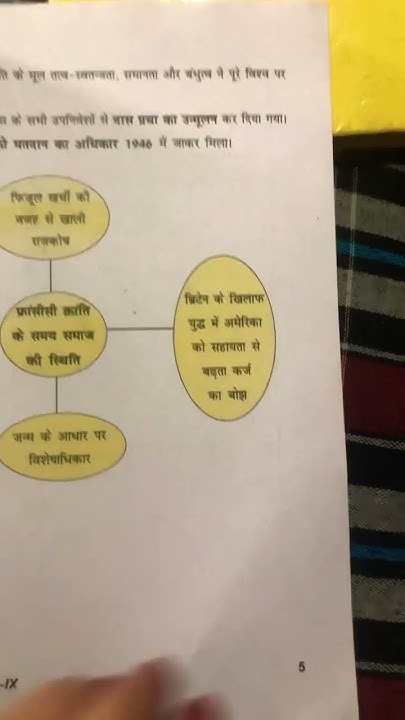 के मूल तत्व-स्वतन्त्रता, समानता और बंधुत्व ने पूरे विश्व पर
के सभी उपनिवेशों से दास प्रथा का उन्मूलन कर दिया गया।
मतदान का अधिकार 1946 में जाकर मिला।
फिजूल खर्ची की
वजह से खाली
राजकोष
फ्रांसीसी क्रांति
के समय समाज
की स्थिति
ब्रिटेन के खिलाफ
युद्ध में अमेरिका
को सहायता से
बढ़ता कर्ज
का बोझ
जन्म के आधार पर
विशेषाधिकार
5
-IX